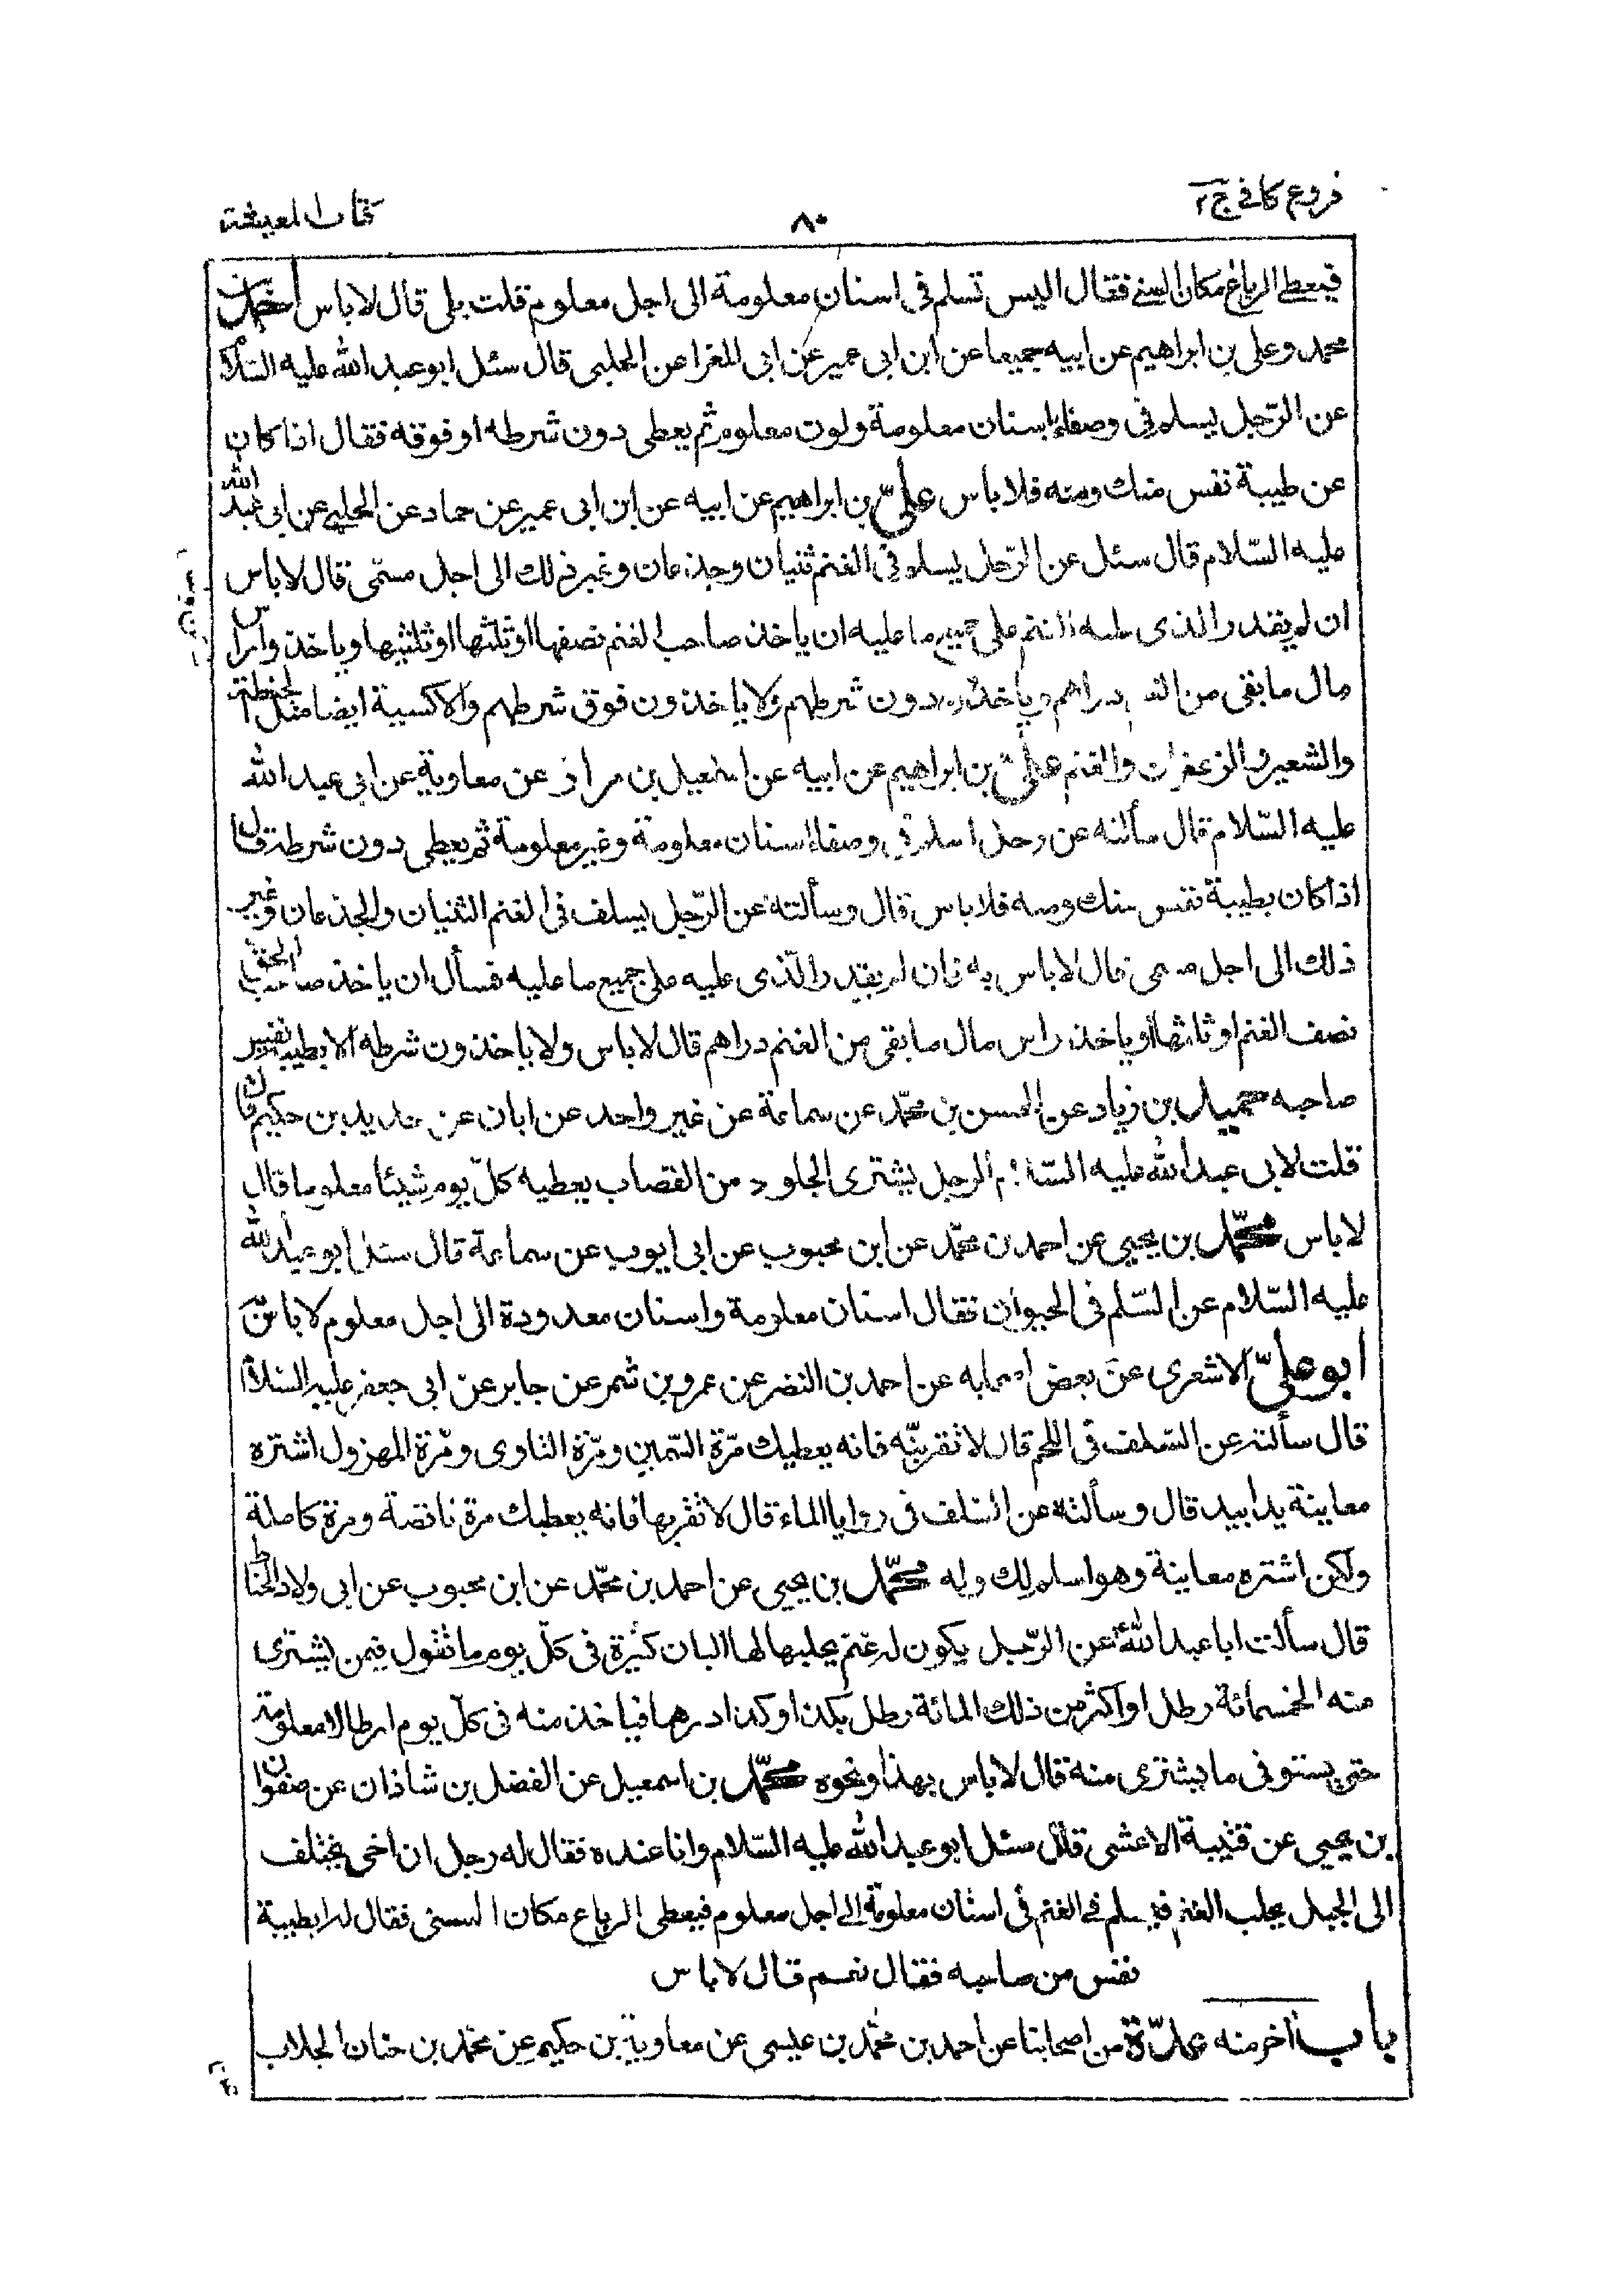 فروع كافى ج ٢
٨٠
كتاب المعيشة
فيعطى الرباع مكان السنى فقال اليس تسلم فى اسنان معلومة الى اجل معلوم قلت بلى قال لاباس احمد بن
محمد وعلى بن ابراهيم عن ابيه جميعا عن ابن ابى عمير عن ابى المغرا عن الحلبى قال سئل ابو عبد الله عليه السّلام
عن الرّجل يسلم فى وصفاء اسنان معلومة ولون معلوم ثم يعطى دون شرطه او فوقه فقال اذا كان
عن طيبة نفس منك ومنه فلاباس علىّ بن ابراهيم عن ابيه عن ابن ابى عمير عن حماد عن الحلبى عن ابى عبد الله
عليه السّلام قال سئل عن الرّجل يسلم فى الغنم ثنيان وجذعان وغير ذلك الى اجل مسمّى قال لاباس
ان لم يقدر الذى عليه الغنم على جميع ما عليه ان ياخذ صاحب الغنم نصفها او ثلثها او ثلثيها وياخذوا راس
مال ما بقى من الغنم دراهم وياخذون دون شرطهم ولا ياخذون فوق شرطهم والاكسية ايضا مثل الحنطة
والشعير والزعفران والغنم علىّ بن ابراهيم عن ابيه عن اسمعيل بن مرار عن معاوية عن ابى عبد الله
عليه السّلام قال سألته عن رجل اسلم فى وصفاء اسنان معلومة وغير معلومة ثم يعطى دون شرطه قال
اذا كان بطيبة نفس منك ومنه فلاباس قال وسألته عن الرّجل يسلف فى الغنم الثنيان والجذعان وغير
ذلك الى اجل مسمى قال لاباس به فان لم يقدر الّذى عليه على جميع ما عليه فسأل ان ياخذ صاحب الحق
نصف الغنم او ثلثها وياخذ راس مال ما بقى من الغنم دراهم قال لاباس ولا ياخذ دون شرطه الا بطيبة نفس
صاحبه حميد بن زياد عن الحسن بن محمّد عن سماعة عن غير واحد عن ابان عن حديد بن حكيم قال
قلت لابى عبد الله عليه السّلام الرجل يشترى الجلود من القصاب يعطيه كلّ يوم شيئا معلوما قال
لاباس محمّد بن يحيى عن احمد بن محمّد عن ابن محبوب عن ابى ايوب عن سماعة قال سئل ابو عبد الله
عليه السّلام عن السّلم فى الحيوان فقال اسنان معلومة واسنان معدودة الى اجل معلوم لاباس به
ابو علىّ الاشعرى عن بعض اصحابه عن احمد بن النضر عن عمرو بن شمر عن جابر عن ابى جعفر عليه السّلام
قال سألته عن السّلف فى اللحم قال لا تقربنّه فانه يعطيك مرّة السّمين ومرّة التاوى ومرّة المهزول اشتره
معاينة يدا بيد قال وسألته عن السّلف فى روايا الماء قال لا تقربها فانه يعطيك مرة ناقصة ومرة كاملة
ولكن اشتره معاينة وهو اسلم لك وله محمّد بن يحيى عن احمد بن محمّد عن ابن محبوب عن ابى ولاد الحناط
قال سألت ابا عبد الله ع عن الرّجل يكون له غنم يحلبها لها البان كثيرة فى كلّ يوم ما تقول فيمن يشترى
منه الخمسمائة رطل او اكثر من ذلك المائة رطل بكذا وكذا درهما فياخذ منه فى كلّ يوم ارطالا معلومة
حتى يستوفى ما يشترى منه قال لاباس بهذا ونحوه محمّد بن اسمعيل عن الفضل بن شاذان عن صفوان
بن يحيى عن قتيبة الاعشى قال سئل ابو عبد الله عليه السّلام وانا عنده فقال له رجل ان اخى يختلف
الى الجبل يجلب الغنم فيسلم فى الغنم فى اسنان معلومة الى اجل معلوم فيعطى الرباع مكان السنى فقال له ابطيبة
نفس من صاحبه فقال نعم قال لاباس
باب آخر منه عدّة من اصحابنا عن احمد بن محمّد بن عيسى عن معاوية بن حكيم عن محمّد بن حنان الجلاب